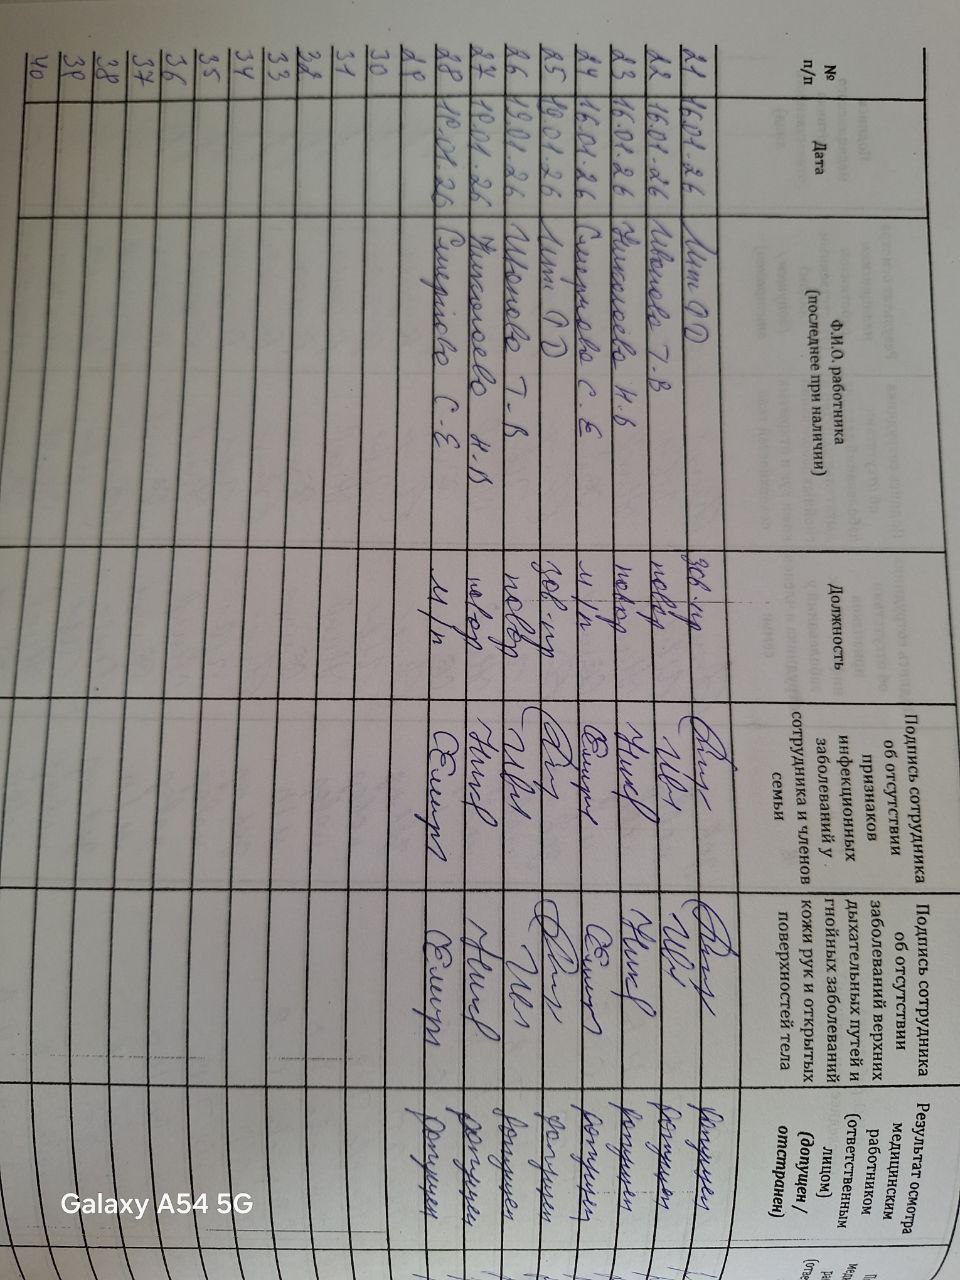 № п/п
Дата
Ф.И.О. работника
(последнее при наличии)
Должность
Подпись сотрудника
об отсутствии
признаков
инфекционных
заболеваний у
сотрудника и членов
семьи
Подпись сотрудника
об отсутствии
заболеваний верхних
дыхательных путей и
гнойных заболеваний
кожи рук и открытых
поверхностей тела
Результат осмотра
медицинским
работником
(ответственным
лицом)
(допущен /
отстранен)
21 16.01.26 Лит О Д зав.пр допущен
22 16.01.26 Иванова Т.В повар Ив допущен
23 16.01.26 Николаева Н.В повар Ник допущен
24 16.01.26 Смирнова С.Е м/п допущен
25 19.01.26 Лит О Д зав.пр допущен
26 19.01.26 Иванова Т.В повар Ив допущен
27 19.01.26 Николаева Н.В повар Ник допущен
28 19.01.26 Смирнова С.Е м/п допущен
29
30
31
32
33
34
35
36
37
38
39
40
Galaxy A54 5G